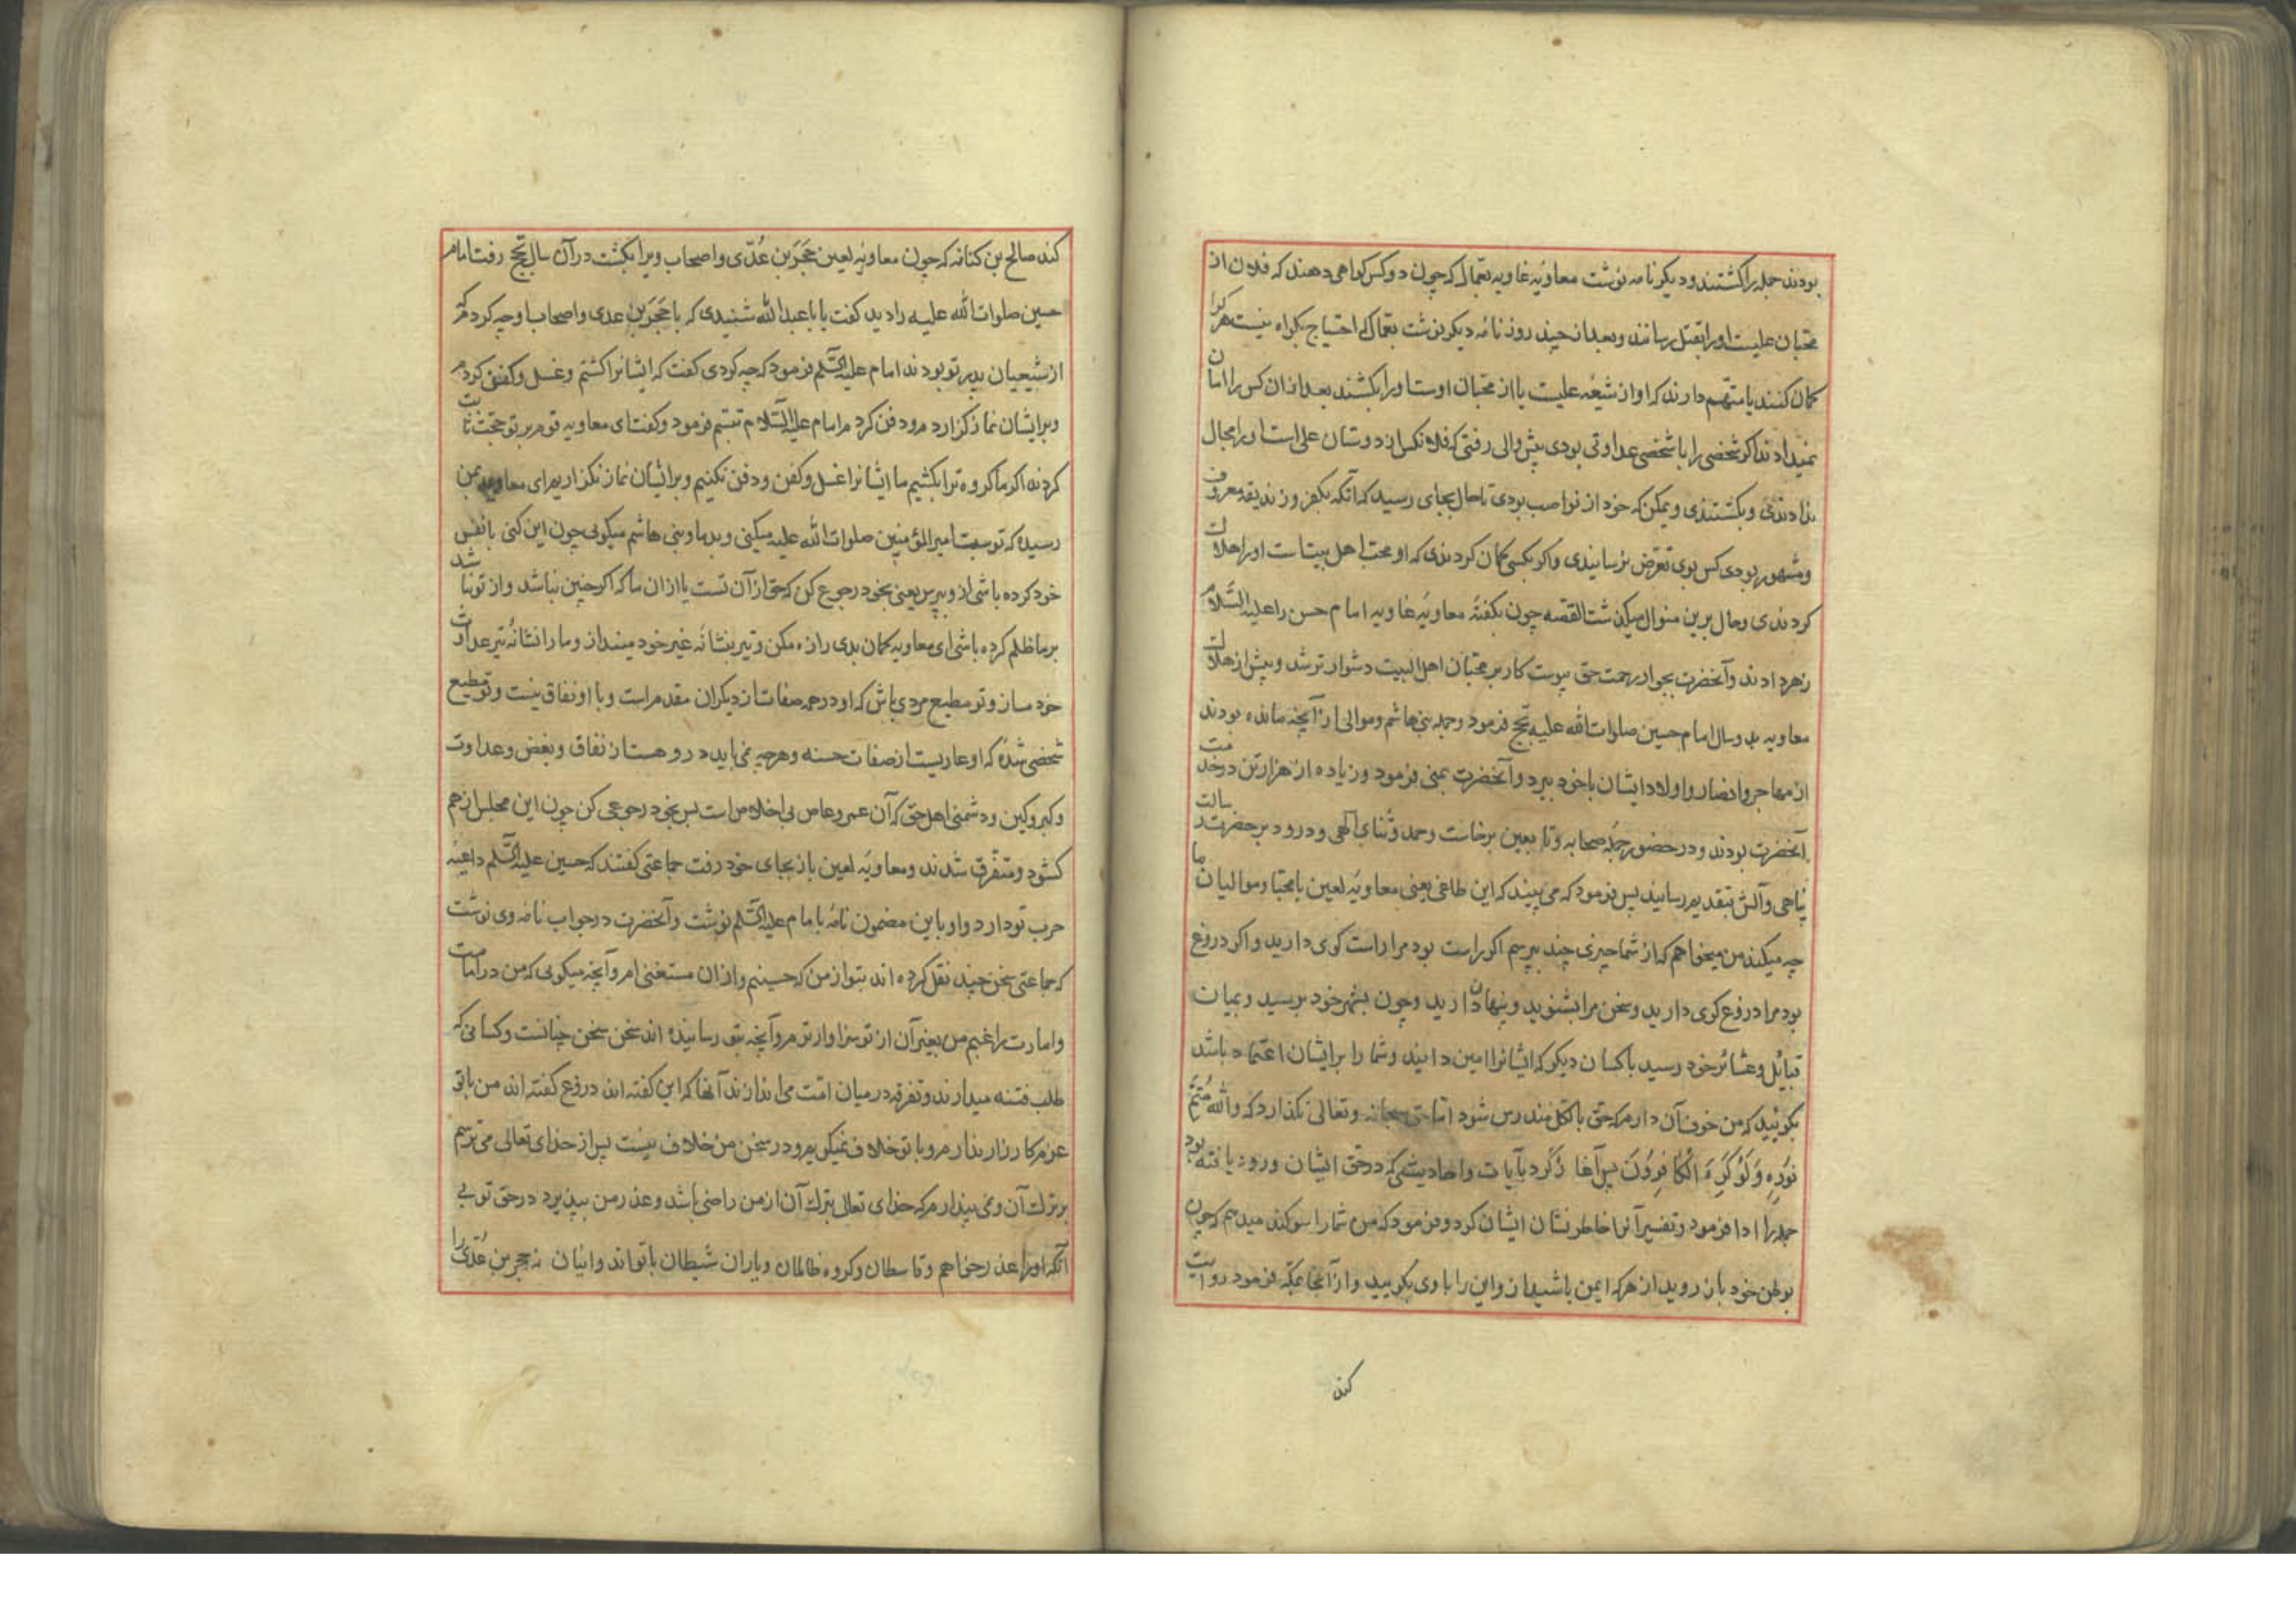 بودند جمله را کشتند و دیکر نامه نوشت معاویهٔ غاویه بعمال که چون دو کس کواهی دهند که فلان از
محبان علیست او را بقتل رسانند و بعد از چند روز نامهٔ دیکر نوشت بعمال که احتیاج بکواه نیست هر کرا
کمان کنند یا متهم دارند که او از شیعهٔ علیست یا از محبان اوست او را بکشند بعد از ان کس را امان
نمیدادند اکر شخصی را با شخصی عداوتی بودی پیش والی رفتی که فلانکس از دوستان علی است او را مجال
ندادندی و بکشتندی و یمکن که خود از نواصب بودی تا حال بجای رسید که آنکه بکفر و زندیقه معروف
و مشهور بودی کس بوی تعرض نرسانیدی و اکر بکسی کمان کردندی که او محب اهل بیت است او را هلاک
کردندی و حال برین منوال میکذشت القصه چون بکفتهٔ معاویهٔ غاویه امام حسن را علیه السلام
زهر دادند و آنحضرت بجوار رحمت حق پیوست کار بر محبان اهل البیت دشوارتر شد و پیش از هلاک
معاویه بدو سال امام حسین صلوات الله علیه بحج فرمود و جمله بنی هاشم و موالی از آنچه مانده بودند
از مهاجر و انصار و اولاد ایشان با خود ببرد و آنحضرت بمنی فرمود و زیاده از هزار تن در خدمت
آنحضرت بودند و در حضور جمله صحابه و تابعین برخاست و حمد و ثنای الهی و درود بر حضرت رسالت
پناهی و آلش بتقدیم رسانید پس فرمود که می بیند که این طاغی یعنی معاویهٔ لعین با محبان و موالیان ما
چه میکند من میخواهم که از شما چیزی چند بپرسم اکر راست بود مرا راست کوی دارید و اکر دروغ
بود مرا دروغ کوی دارید و سخن مرا بشنوید و پنهان دارید و چون بشهر خود برسید و بمیان
قبایل و عشائر خود رسید با کسان دیکر که ایشانرا امین دانید و شما را بر ایشان اعتماد باشد
بکوئید که من خوف آن دارم که حق بالکل مندرس شود اما حق سبحانه و تعالی نکذارد که والله متم
نوره ولو کره الکافرون پس آغاز کرد بآیات و احادیثی که در حق ایشان ورود یافته بود
جمله را ادا فرمود و تفسیر آنرا خاطر نشان ایشان کرد و فرمود که من شما را سوکند میدهم که چون
بوطن خود باز روید از هر که ایمن باشید از و این را با وی بکویید و از آنجا بمکه فرمود روایت
کند
کند صالح بن کنانه که چون معاویه لعین حجر بن عدی و اصحاب ویرا بکشت در آن سال بحج رفت امام
حسین صلوات الله علیه را دید کفت یا با عبدالله شنیدی که با حجر بن عدی و اصحاب او چه کردم که
از شیعیان پدر تو بودند امام علیه السلم فرمود که چه کردی کفت که ایشانرا کشتم و غسل و کفن کردم
و بر ایشان نماز کزاردم و دفن کردم امام علیه السلام تبسم فرمود و کفت ای معاویه قوم بر تو حجت ثابت
کردند اکر ما کروه ترا بکشیم ما ایشانرا غسل و کفن و دفن نکنیم و بر ایشان نماز نکزاریم ای معاویه بمن
رسیده که تو سب امیر المؤمنین صلوات الله علیه میکنی و بد ما و بنی هاشم میکوئی چون این کنی با نفس
خود کرده باشی از و بپرس یعنی بخود رجوع کن که حق از آن تست یا از ان ما که اکر چنین نباشد و از تو نباشد
بر ما ظلم کرده باشی ای معاویه کمان بدی را زه مکن و تیر بنشانهٔ غیر خود مینداز و ما را نشانهٔ تیر عداوت
خود مساز و تو مطیع مردی باش که او در جمه صفات از دیکران مقدم است و با او نفاق نیست و تو مطیع
شخصی شدهٔ که او عاریست از صفات حسنه و هر چه نمی باید در و هست از نفاق و بغض و عداوت
و کبر و کین و دشمنی اهل حق که آن عمرو عاص بی اخلاص است پس بخود رجوعی کن چون این مجلس از هم
کشود و متفرق شدند و معاویهٔ لعین باز بجای خود رفت جماعتی کفتند که حسین علیه السلم داعیهٔ
حرب تو دارد و او باین مضمون نامهٔ با امام علیه السلم نوشت و آنحضرت در جواب نامه وی نوشت
که جماعتی سخن چند نقل کرده اند بتو از من که حسینم و از ان مستغنی ام و آنچه میکوئی که من در امامت
و امارت راغبم من بغیر آن از تو سزاوارترم و آنچه بتو رسانیده اند سخن سخن چنانست و کسانی که
طلب فتنه میدارند و تفرقه در میان امت می اندازند آنها که این کفته اند دروغ کفته اند من با تو
عزم کارزار ندارم و با تو خلاف نمیکویم و در سخن من خلاف نیست پس از خدای تعالی می ترسم
بر ترک آن و نمی پندارم که خدای تعالی بترک آن از من راضی باشد و عذر من بپذیرد در حق تو بی
آنکه او را عذر خواهم و قاسطان و کروه ظالمان و یاران شیطان با تو اند و اینان نه حجر بن عدی را